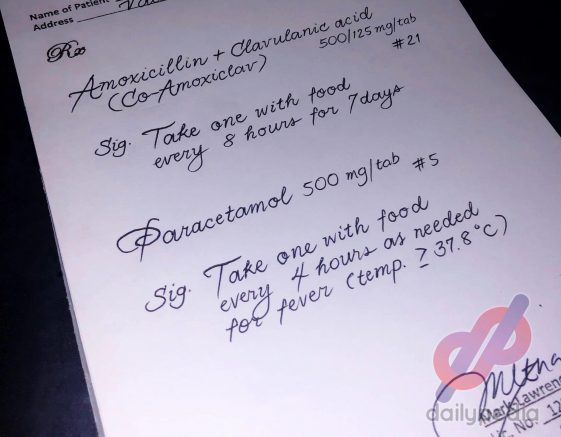 Name of Patient
Address
Rx
Amoxicillin + Clavulanic acid
(Co-Amoxiclav) 500/125 mg/tab
#21
Sig. Take one with food
every 8 hours for 7days
Paracetamol 500 mg/tab #5
Sig. Take one with food
every 4 hours as needed
for fever (temp. ≥ 37.8°C)
Mark Lawrenc
dailypedia
No. 12